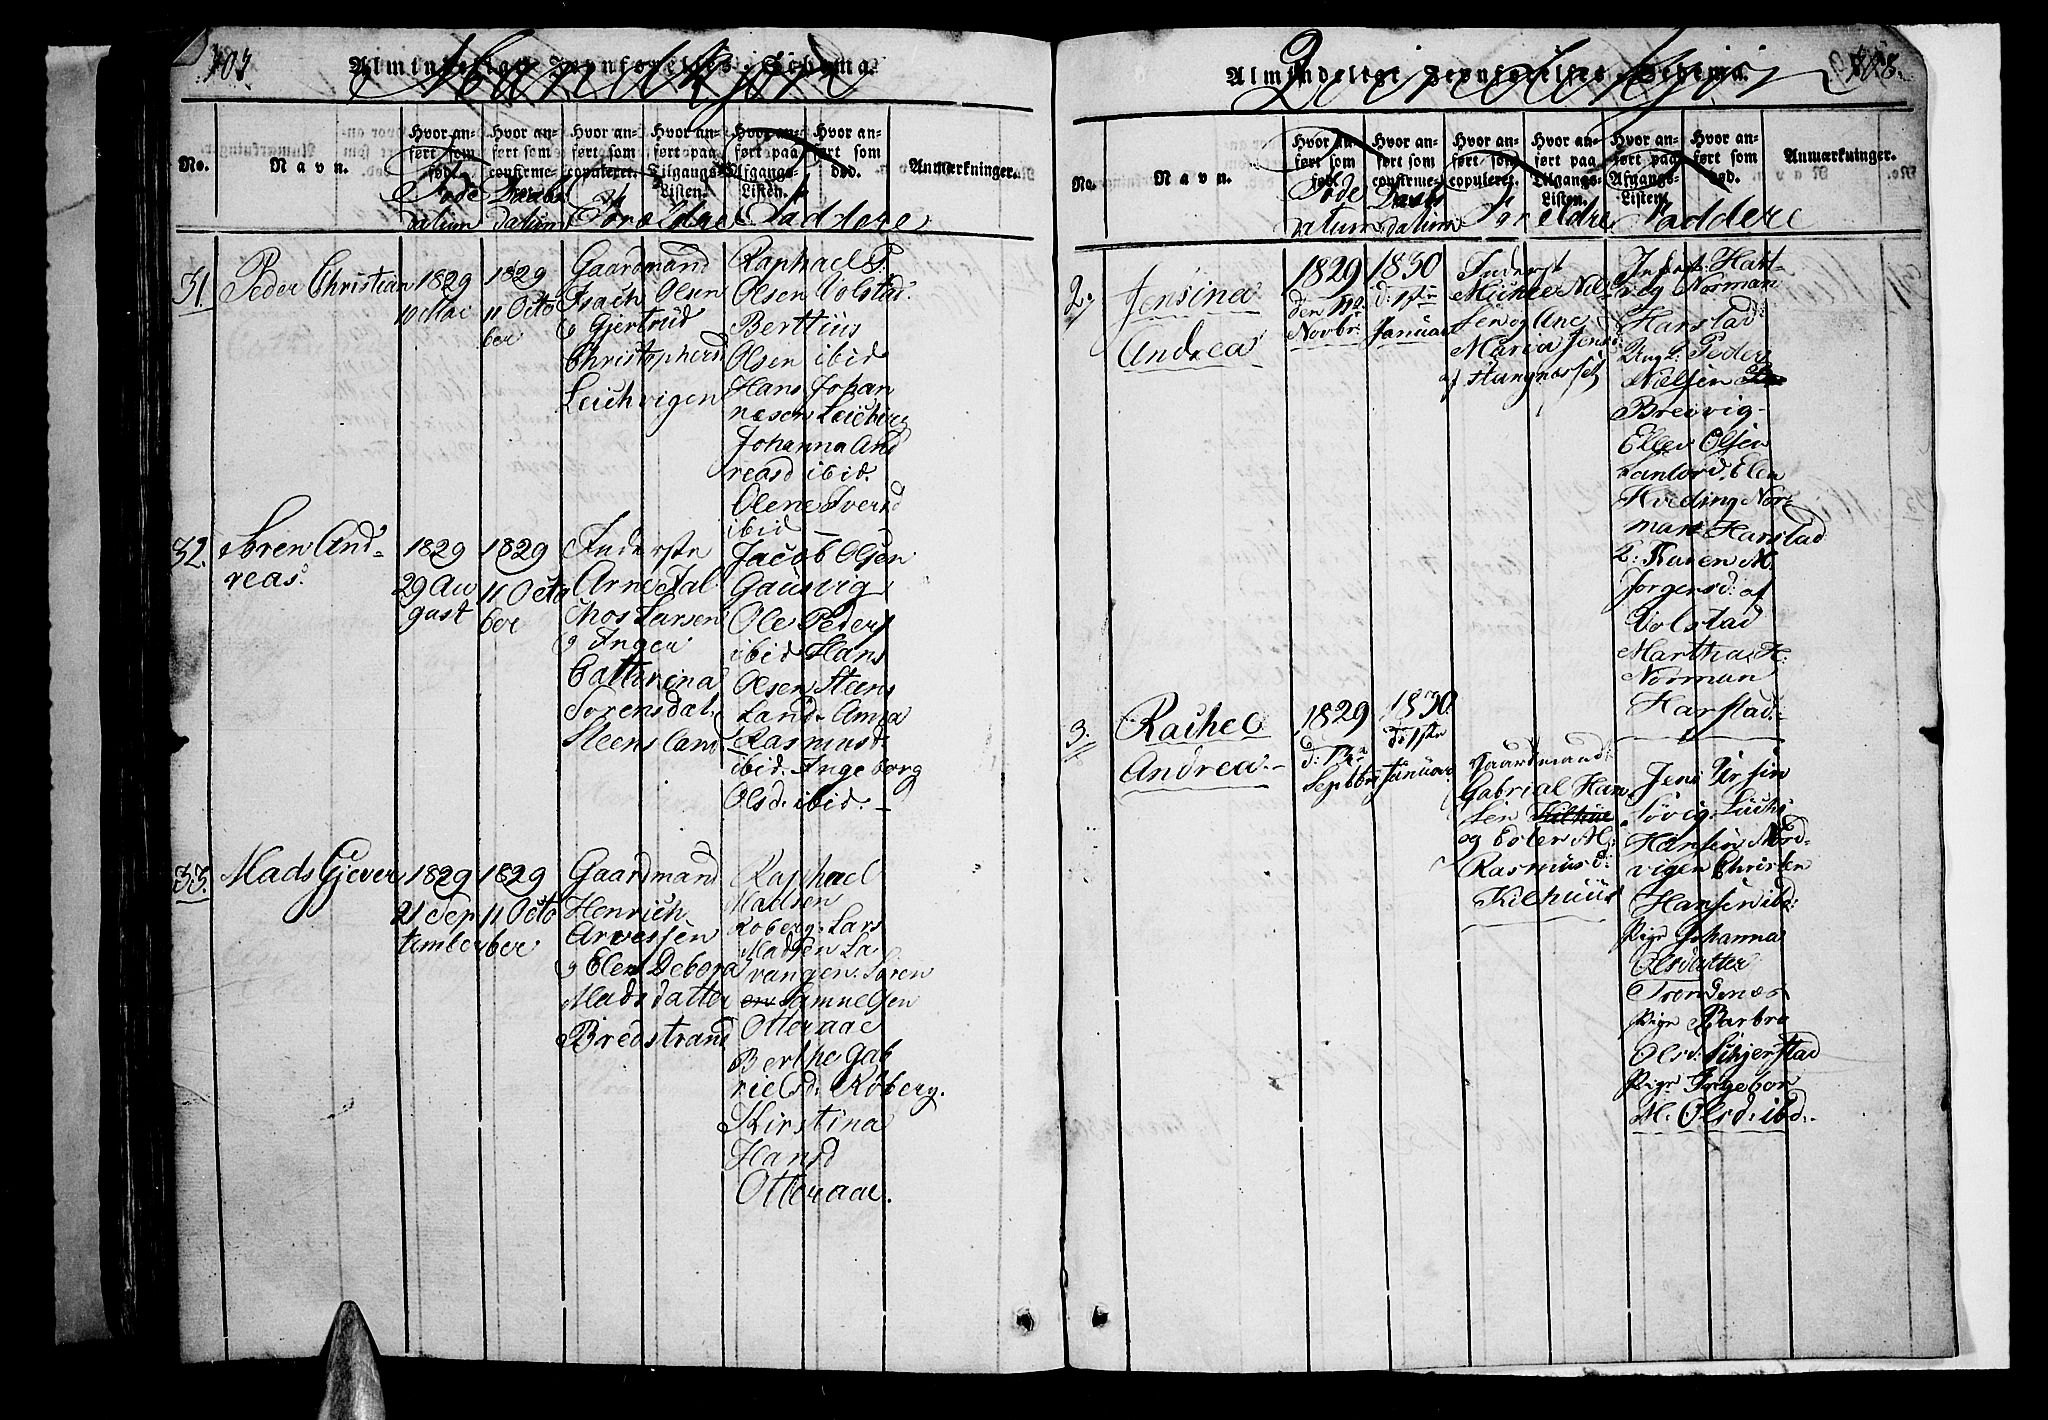 Almindeligt Jevnførelses-Schema.
Mandkjøn
No.
Navn.
Hvor an-
ført som
født.
Hvor an-
ført som
confirme-
Hvor an-
ført som
copuleret.
Hvor an-
ført paa
Tilgangs-
Listen.
Hvor an-
ført paa
Afgangs-
Listen.
Hvor an-
ført som
død.
Anmærkninger.
Føde
datum
Daabs
datum
Forældre
Faddere
31.
Peder Christian
1829
10 Mai
1829
11 Octo
ber
Gaardmand
Isach Olsen
og Gjertrud
Christophersd
Leichvigen
Raphael P.
Olsen Volstad.
Berthus
Olsen ibid
Hans Johan
nesen Leichvig
Johanna And
reasd ibid.
Olene Iversd
ibid
32.
Søren And-
reas.
1829
29 Au
gust
1829
11 Octo
ber
Inderste
Arne Jal
Larsen
og Inger
Catharina
Sørensdat.
Steensland
Jacob Olsen
Gausvig
Ole Peders
ibid Hans
Olsen Steens
land. Anna
Rasmusd
ibid. Ingeborg
Olsd. ibid.
33.
Mads Gjever
1829
21 Sep
tember
1829
11 Octo
ber
Gaardmand
Henrich
Arvessen
og Elen Debora
Madsdatter
Bredstrand
Raphael
Madsen
Roberg. Lars
Madsen La
vangen. Søren
Samuelsen
Otteraae
Berthe Gab
rielsd. Røberg.
Kirstina
Hansd
Otteraae.
Almindeligt Jevnførelses-Schema.
No.
Navn.
Hvor an-
ført som
født.
Hvor an-
ført som
confirme-
Hvor an-
ført som
copuleret.
Hvor an-
ført paa
Tilgangs-
Listen.
Hvor an-
ført paa
Afgangs-
Listen.
Hvor an-
ført som
død.
Anmærkninger.
Føde
datum
Daabs
datum
Foreldre
Faddere
2.
Jensina
Andrea
1829
Novbr:
1830
d: 1ste
Januar
Inderst
Michel Nil-
sen og Ane
Maria Jensd:
af Stangnesset
Inderst: Hart-
vig Norman
Harstad
Ung: Peder
Nielsen
Breivig-
Ellen Olsen
Elen
Hveding Nor-
man Harstad
Karen M.
Jørgensd: af
Volstad
Martha H:
Norman
Harstad.-
3.
Rachel
Andrea.-
1829
Septbr
1830.
d: 1ste
Januar
Gaardmand:
Gabrial Han
sen
og Ester M:
Rasmusd:
Kilhuus
Jens
Hansen Nord-
vigen Christen
Hansen ibd:
Pige Johanna
Olsdatter
Trondenæs
Pige Barbro
Olsd: Schjerstad
Pige Ingebor
M. Olsd: ibd.-